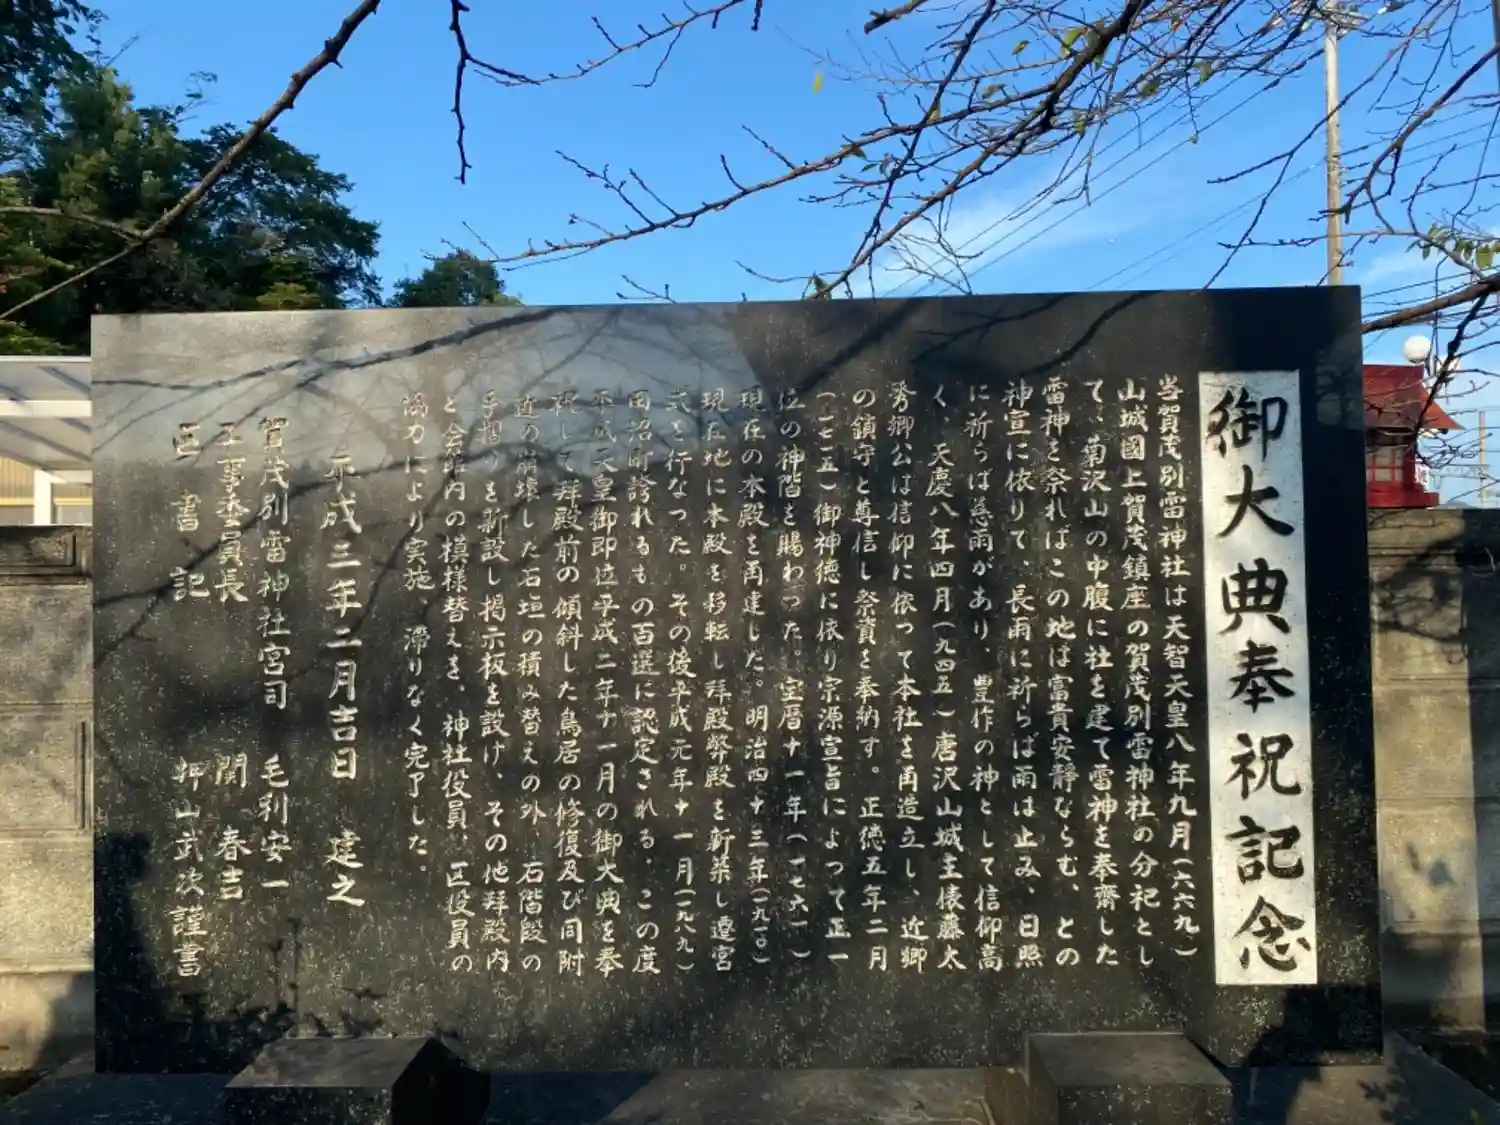 御大典奉祝記念
当賀茂別雷神社は天智天皇八年九月(六六九)
山城國上賀茂鎮座の賀茂別雷神社の分祀とし
て、菊沢山の中腹に社を建て雷神を奉齋した
雷神を祭ればこの地は富貴安静ならむ、との
神宣に依りて、長雨に祈らば雨は止み、日照
に祈らば慈雨があり、豊作の神として信仰高
く、天慶八年四月(九四五)唐沢山城主俵藤太
秀郷公は信仰に依って本社を再造立し、近郷
の鎮守と尊信し祭資を奉納す。正徳五年二月
(一七一五)御神徳に依り宗源宣旨によって正一
位の神階を賜わった。宝暦十一年(一七六一)
現在の本殿を再建した。明治四十三年(一九一〇)
現在地に本殿を移転し拝殿弊殿を新築し遷宮
式を行なった。その後平成元年十一月(一九八九)
田沼町誇れるもの百選に認定される。この度
平成天皇御即位平成二年十一月の御大典を奉
祝して拝殿前の傾斜した鳥居の修復及び同附
近の崩壊した石垣の積み替えの外、石階段の
手摺りを新設し掲示板を設け、その他拝殿内
と会館内の模様替えを、神社役員、区役員の
協力により実施 滞りなく完了した。
平成三年二月吉日 建之
賀茂別雷神社宮司 毛利安一
工事委員長 関 春吉
区書記 押山武次謹書